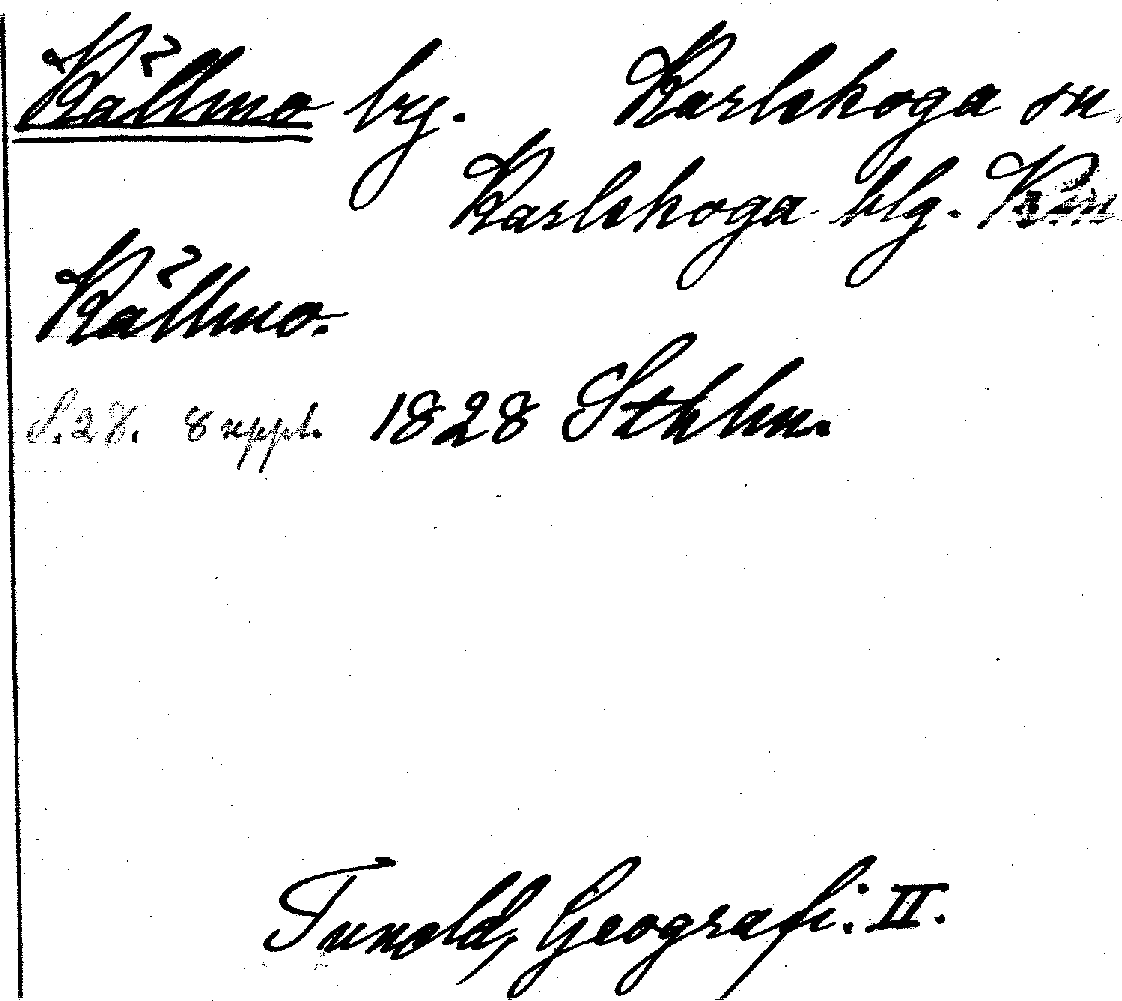 Källmo by. Karlskoga sn.
Karlskoga blg.
Källmo.
S. 28. 8 uppl. 1828 Sthlm.
Tunold, Geografi. II.